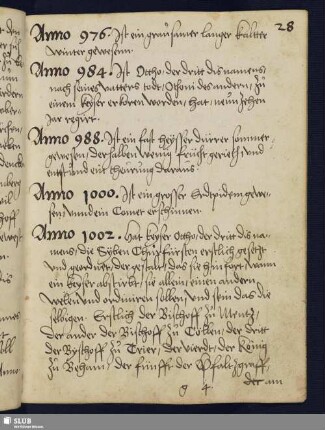 28
Anno 976. Ist ein grausamer langer kalter
winter gewesenn.
Anno 984. Ist Ottho, der dritt dis namens,
nach seines vatters todt, Othonis des andern, zu
einem keyser erkoren worden, hat neunzehen
jar regirt.
Anno 988. Ist ein fast heysser dürrer sommer
gewesen, derhalben wenig frücht gerieth und
entstund ein theurung daraus.
Anno 1000. Ist ein grosser Erdpidem gewe-
sen, unnd ein Comet erschinnen.
Anno 1002. Hat keyser Ottho, der dritt dis na-
mens, die Syben Churfürsten erstlich gesetzt
und geordnet, der gestalt, das sie hinfort, wann
ein keyser abstirbt, sie allein, einen andern
welen und ordiniren sollen, und sein das die
selbigen. Erstlich der Bischoff zu Mentz,
der ander der Bischoff zu Cöllen, der dritt
der Bischoff zu Trier, der vierdt, der König
zu Beham, der fünfft der Pfaltzgraff,
der am
g 4
SLUB